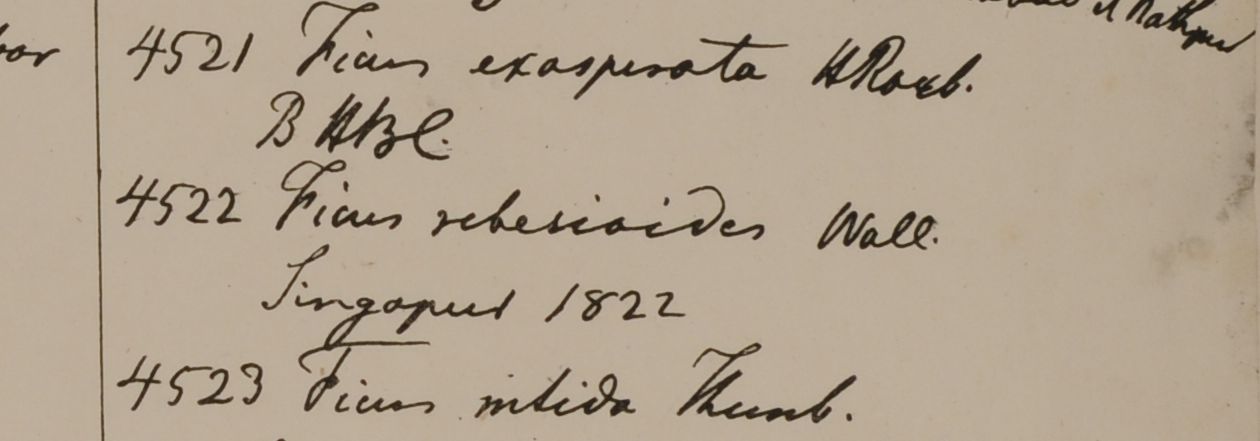 4521 Ficus exasperata HRoxb.
B HBC.
4522 Ficus rebesioides Wall.
Singapur 1822
4523 Ficus nitida Thunb.